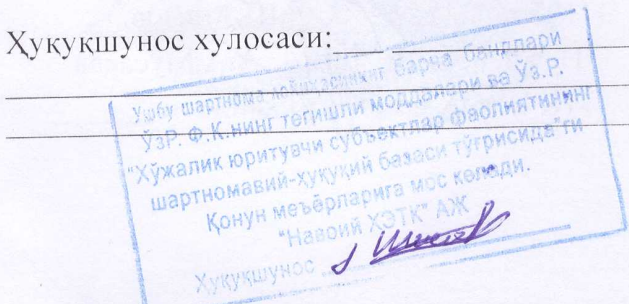 Ҳуқуқшунос хулосаси:
Ушбу шартнома лойиҳасининг барча бандлари
ЎзР. Ф.К.нинг тегишли моддалари ва Ўз.Р.
"Хўжалик юритувчи субъектлар фаолиятининг
шартномавий-ҳуқуқий базаси тўғрисида"ги
Қонун меъёрларига мос келади.
"Навоий ҲЭТК" АЖ
Ҳуқуқшунос